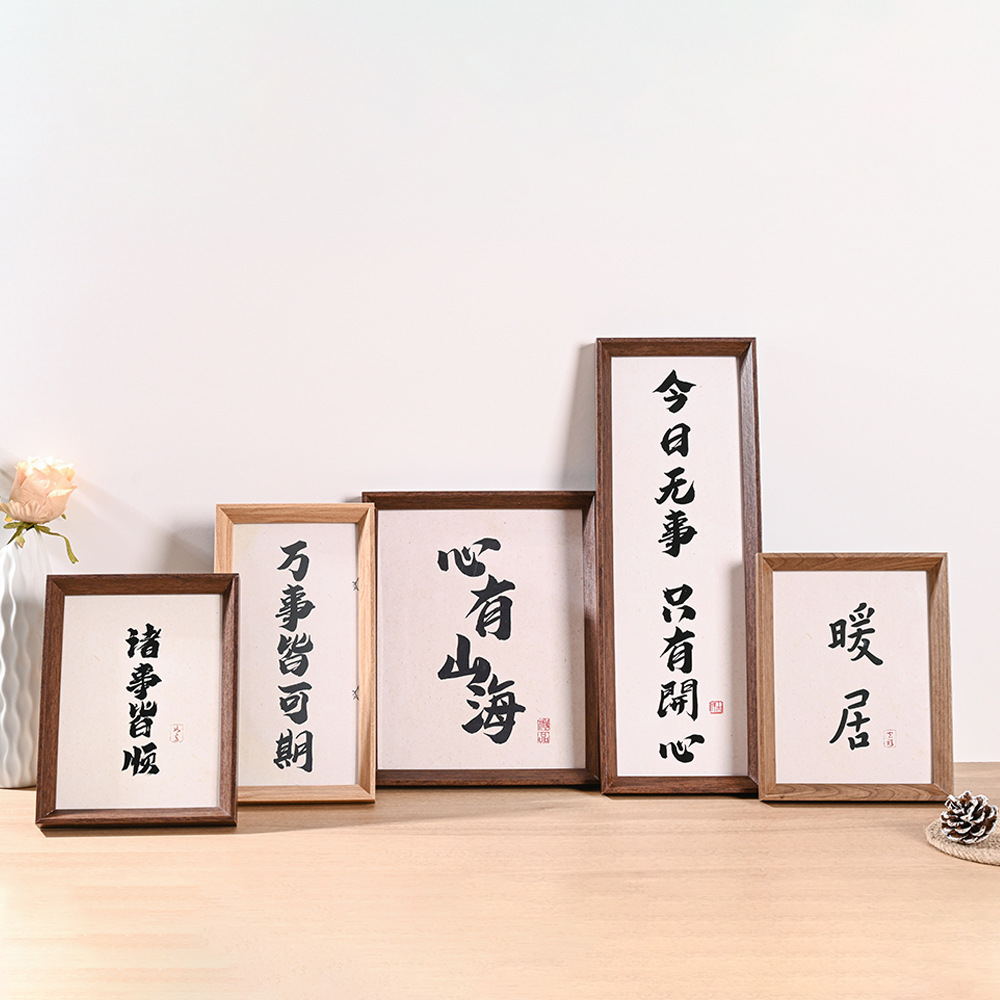 诸事皆顺
万事皆可期
心有山海
今日无事 只有開心
暖居